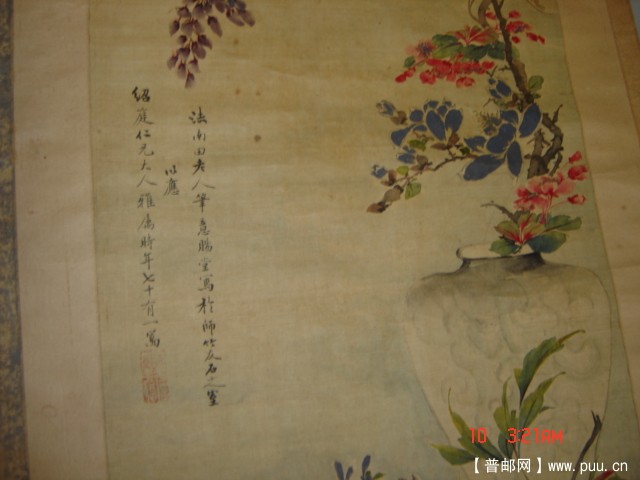 法南田老人筆意勝堂寫於師竹友石之室
以應
紹庭仁兄大人雅屬時年七十有一
10 3:21AM
【普邮网】www.puu.cn